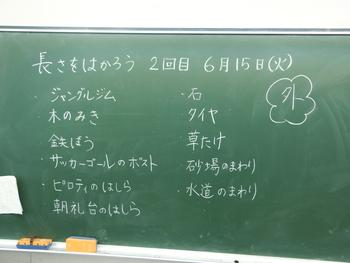 長さをはかろう 2回目 6月15日(火)
・ジャングルジム
・木のみき
・鉄ぼう
・サッカーゴールのポスト
・ピロティのはしら
・朝礼台のはしら
・石
・タイヤ
・草たけ
・砂場のまわり
・水道のまわり
外